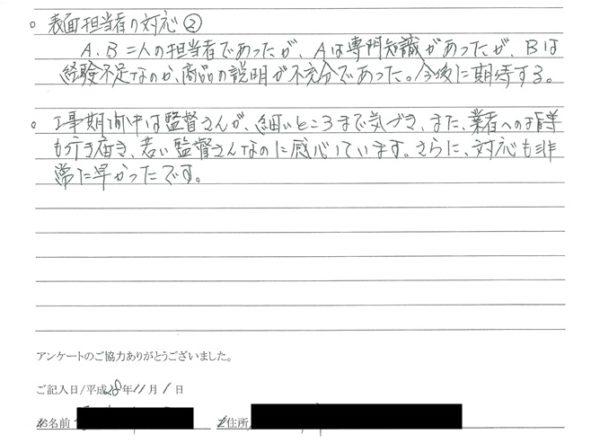 ○ 表面担当者の対応②
A、B二人の担当者であったが、Aは専門知識があったが、Bは
経験不足なのか、商品の説明が不充分であった。今後に期待する。
○ 工事期間中は監督さんが、細いところまで気づき、また、業者への指導
も行き届き、若い監督さんなのに感心しています。さらに、対応も非
常に早かったです。
アンケートのご協力ありがとうございました。
ご記入日/平成28年11月1日
お名前
ご住所